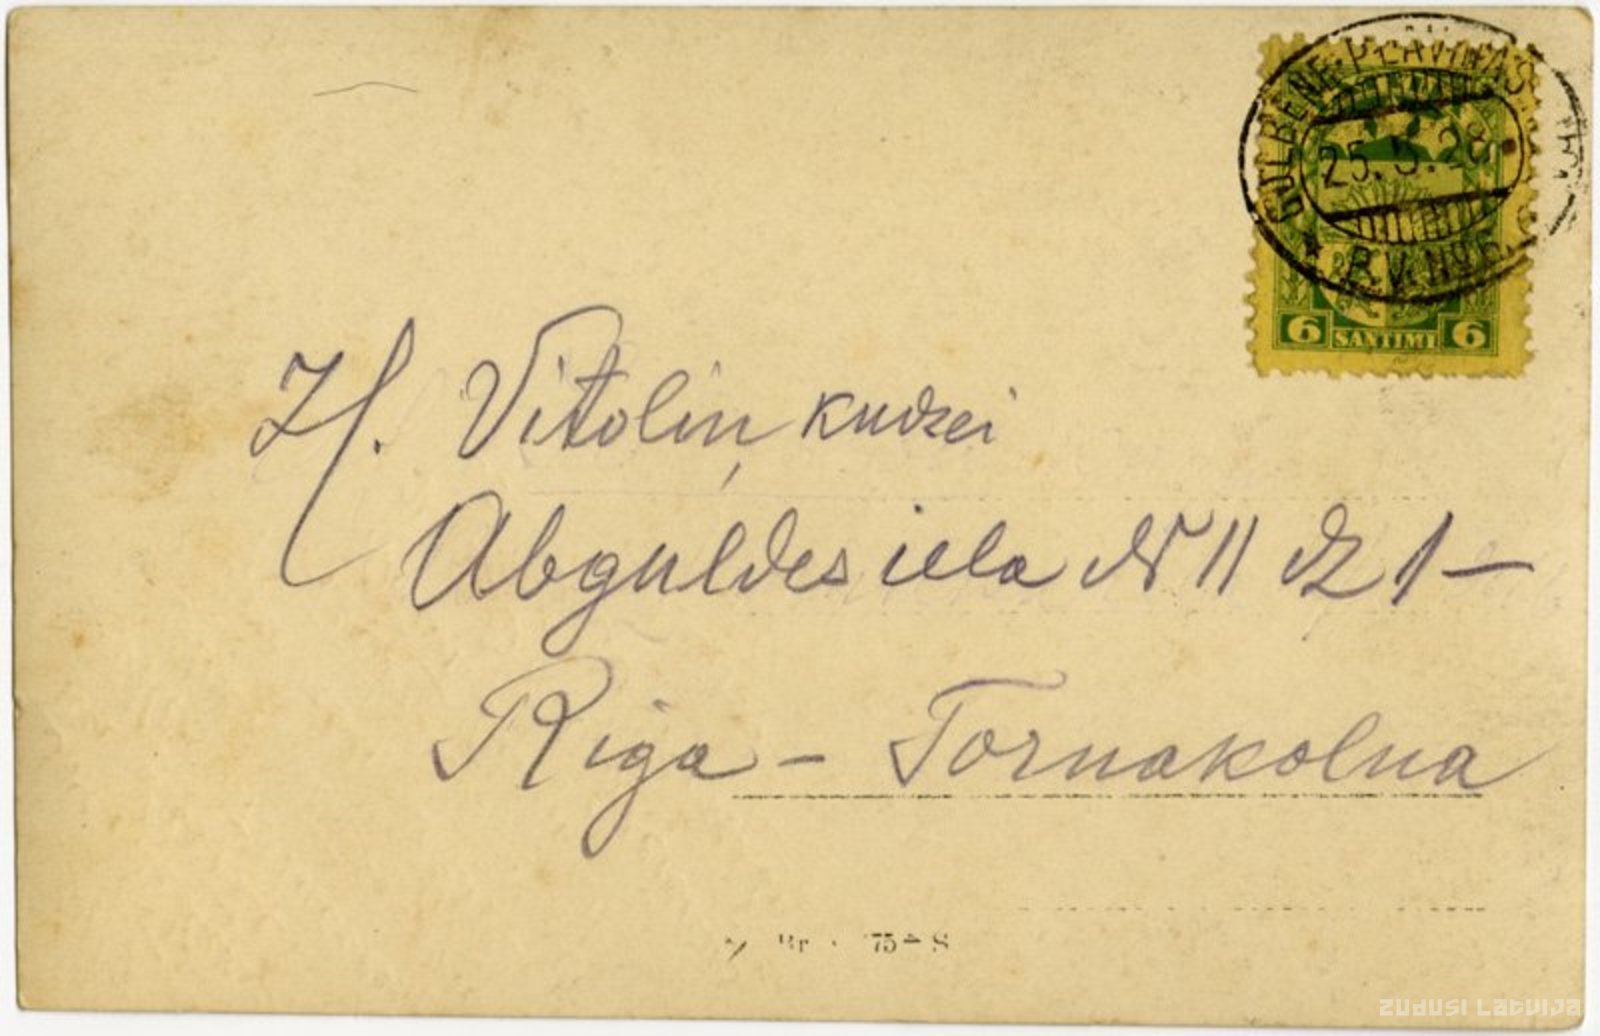 GULBENE-PĻAVIŅAS
25.5.28
P.V. No
6 SANTIMI 6
H. Vitoliņ kundzei
Abguldes iela N 11 dz 1 —
Riga - Tornakolna
75
S
ZUDUSI LATVIJA